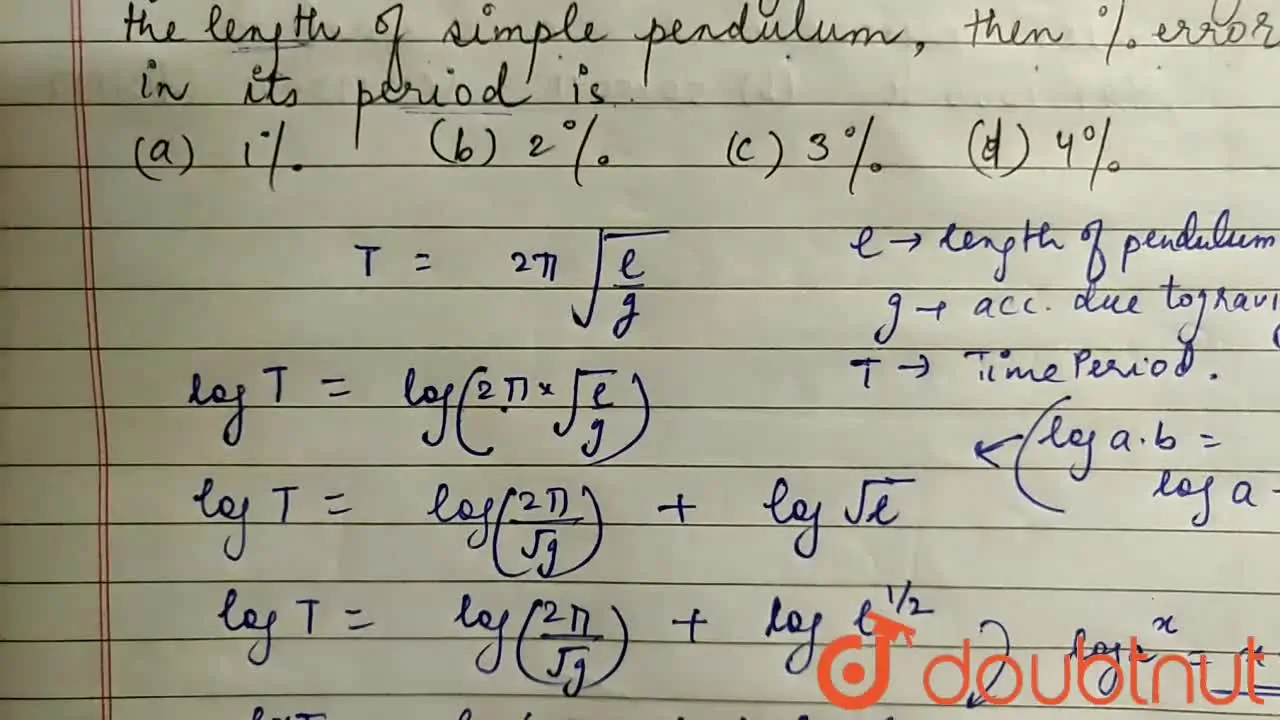 the length of simple pendulum, then % error
in its period is.
(a) 1%. (b) 2%. (c) 3%. (d) 4%.
T = 2π √(l/g) l → length of pendulum
g → acc. due to gravi
T → Time Period.
log T = log(2π × √(l/g))
(log a.b =
log a +
log T = log(2π/√g) + log √l
log T = log(2π/√g) + log l^1/2
log x = x
doubtnut